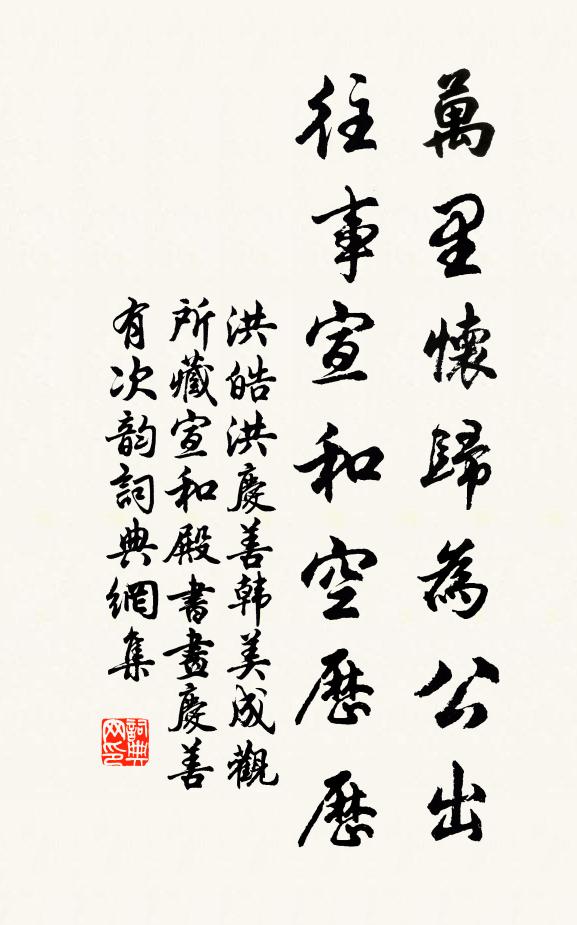 萬里懷歸為公出
往事宣和空歷歷
洪皓洪慶善韓美成觀
所藏宣和殿書畫慶善
有次韵詞典網集
詞典网印